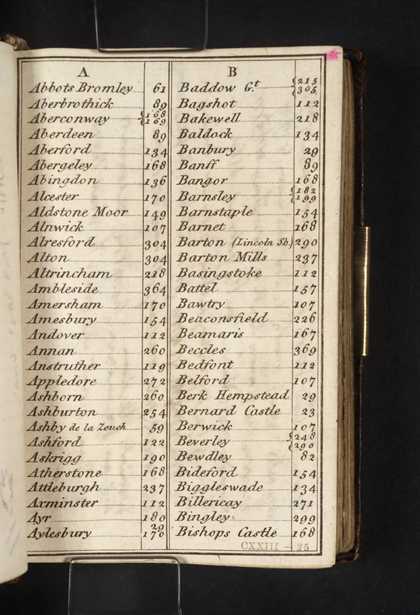 A
Abbots Bromley 61
Aberbrothick 89
Aberconway {168 169
Aberdeen 89
Aberford 134
Abergeley 168
Abingdon 136
Alcester 170
Aldstone Moor 149
Alnwick 107
Alresford 304
Alton 304
Altrincham 218
Ambleside 364
Amersham 170
Amesbury 154
Andover 112
Annan 260
Anstruther 119
Appledore 272
Ashborn 260
Ashburton 254
Ashby de la Zouch 59
Ashford 122
Askrigg 190
Atherstone 168
Attleburgh 237
Axminster 112
Ayr 180
Aylesbury 29 170
B
Baddow Gt {215 305
Bagshot 112
Bakewell 218
Baldock 134
Banbury 29
Banff 89
Bangor 168
Barnsley {182 199
Barnstaple 154
Barnet 168
Barton (Lincoln Sh.) 290
Barton Mills 237
Basingstoke 112
Battel 157
Bawtry 107
Beaconsfield 226
Beamaris 167
Beccles 369
Bedfont 112
Belford 107
Berk Hempstead 29
Bernard Castle 23
Berwick 107
Beverley {248 290
Bewdley 82
Bideford 154
Biggleswade 134
Billericay 271
Bingley 299
Bishops Castle 168
CXXIII - 25